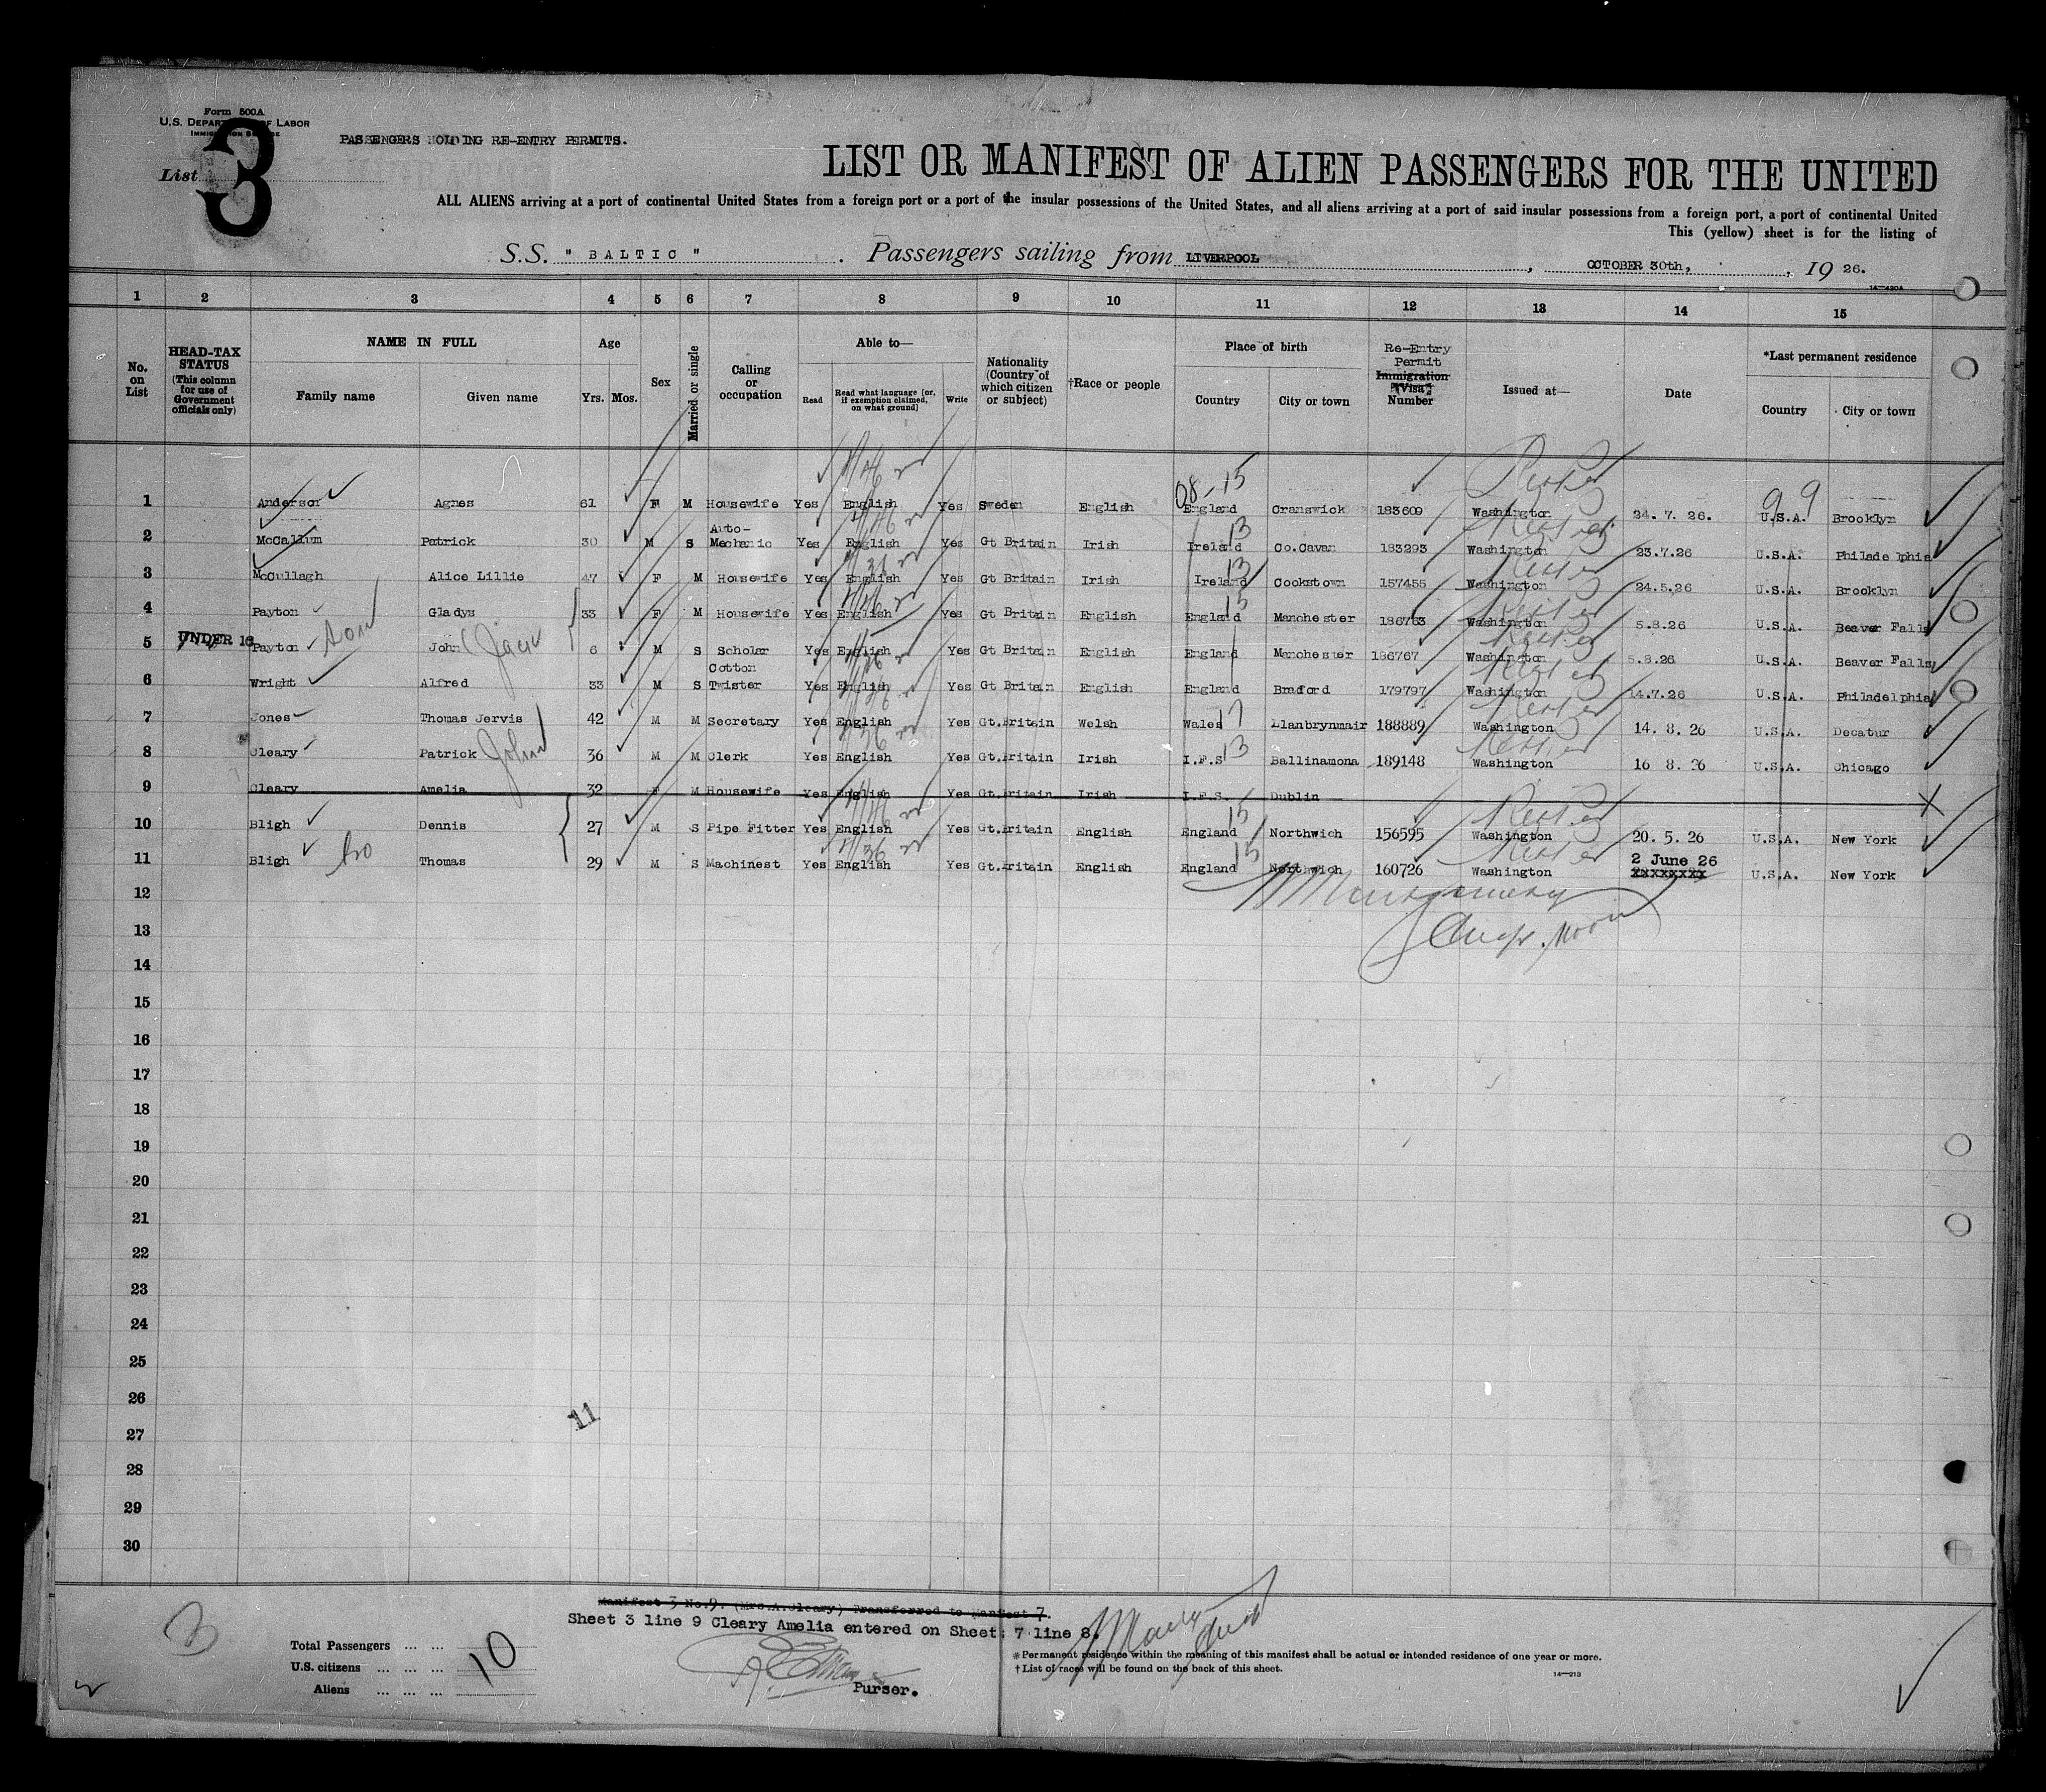 Form 500A
U.S. DEPARTMENT OF LABOR
IMMIGRATION SERVICE
PASSENGERS HOLDING RE-ENTRY PERMITS.
List 3
LIST OR MANIFEST OF ALIEN PASSENGERS FOR THE UNITED
ALL ALIENS arriving at a port of continental United States from a foreign port or a port of the insular possessions of the United States, and all aliens arriving at a port of said insular possessions from a foreign port, a port of continental United
This (yellow) sheet is for the listing of
S.S. " BALTIC " . Passengers sailing from LIVERPOOL , OCTOBER 30th, , 19 26.
14—430A
1 2 3 4 5 6 7 8 9 10 11 12 13 14 15
No. on List
HEAD-TAX STATUS (This column for use of Government officials only)
NAME IN FULL
Family name Given name
Age
Yrs. Mos.
Sex
Married or single
Calling or occupation
Able to—
Read Read what language [or, if exemption claimed, on what ground] Write
Nationality (Country of which citizen or subject)
†Race or people
Place of birth
Country City or town
Re-Entry Permit Immigration Visa Number
Issued at—
Date
*Last permanent residence
Country City or town
08-15 99
1 Anderson Agnes 61 F M Housewife Yes English Yes Sweden English England Cranswick 183609 Washington 24.7.26. U.S.A. Brooklyn
2 McCallum Patrick 30 M S Auto-Mechanic Yes English Yes Gt Britain Irish 13 Ireland Co.Cavan 183293 Washington 23.7.26 U.S.A. Philadelphia
3 McCullagh Alice Lillie 47 F M Housewife Yes English Yes Gt Britain Irish 13 Ireland Cookstown 157455 Washington 24.5.26 U.S.A. Brooklyn
4 Payton Gladys 33 F M Housewife Yes English Yes Gt Britain English 15 England Manchester 186763 Washington 5.8.26 U.S.A. Beaver Falls
5 UNDER 16 Payton son John (Jack 6 M S Scholar Yes English Yes Gt Britain English England Manchester 186767 Washington 5.8.26 U.S.A. Beaver Falls
6 Wright Alfred 33 M S Cotton Twister Yes English Yes Gt Britain English England Bradford 179797 Washington 14.7.26 U.S.A. Philadelphia
7 Jones Thomas Jervis 42 M M Secretary Yes English Yes Gt.Britain Welsh Wales 17 Llanbrynmair 188889 Washington 14.8.26 U.S.A. Decatur
8 Cleary Patrick John 36 M M Clerk Yes English Yes Gt.Britain Irish I.F.S 13 Ballinamona 189148 Washington 16 8.26 U.S.A. Chicago
9 Cleary Amelia 32 F M Housewife Yes English Yes Gt.Britain Irish I.F.S. Dublin X
10 Bligh Dennis 27 M S Pipe Fitter Yes English Yes Gt.Britain English 15 England Northwich 156595 Washington 20.5.26 U.S.A. New York
11 Bligh bro Thomas 29 M S Machinest Yes English Yes Gt.Britain English 15 England Northwich 160726 Washington 2 June 26 xxxxxxxx U.S.A. New York
12
13
14
15
16
17
18
19
20
21
22
23
24
25
26
11
27
28
29
30
Manifest 3 No.9. (Mrs.A.Cleary) Transferred to Manifest 7.
Sheet 3 line 9 Cleary Amelia entered on Sheet: 7 line 8.
Total Passengers ... ...
U.S. citizens ... ... ... 10
Aliens ... ... ...
Purser.
* Permanent residence within the meaning of this manifest shall be actual or intended residence of one year or more.
† List of races will be found on the back of this sheet.
14—213